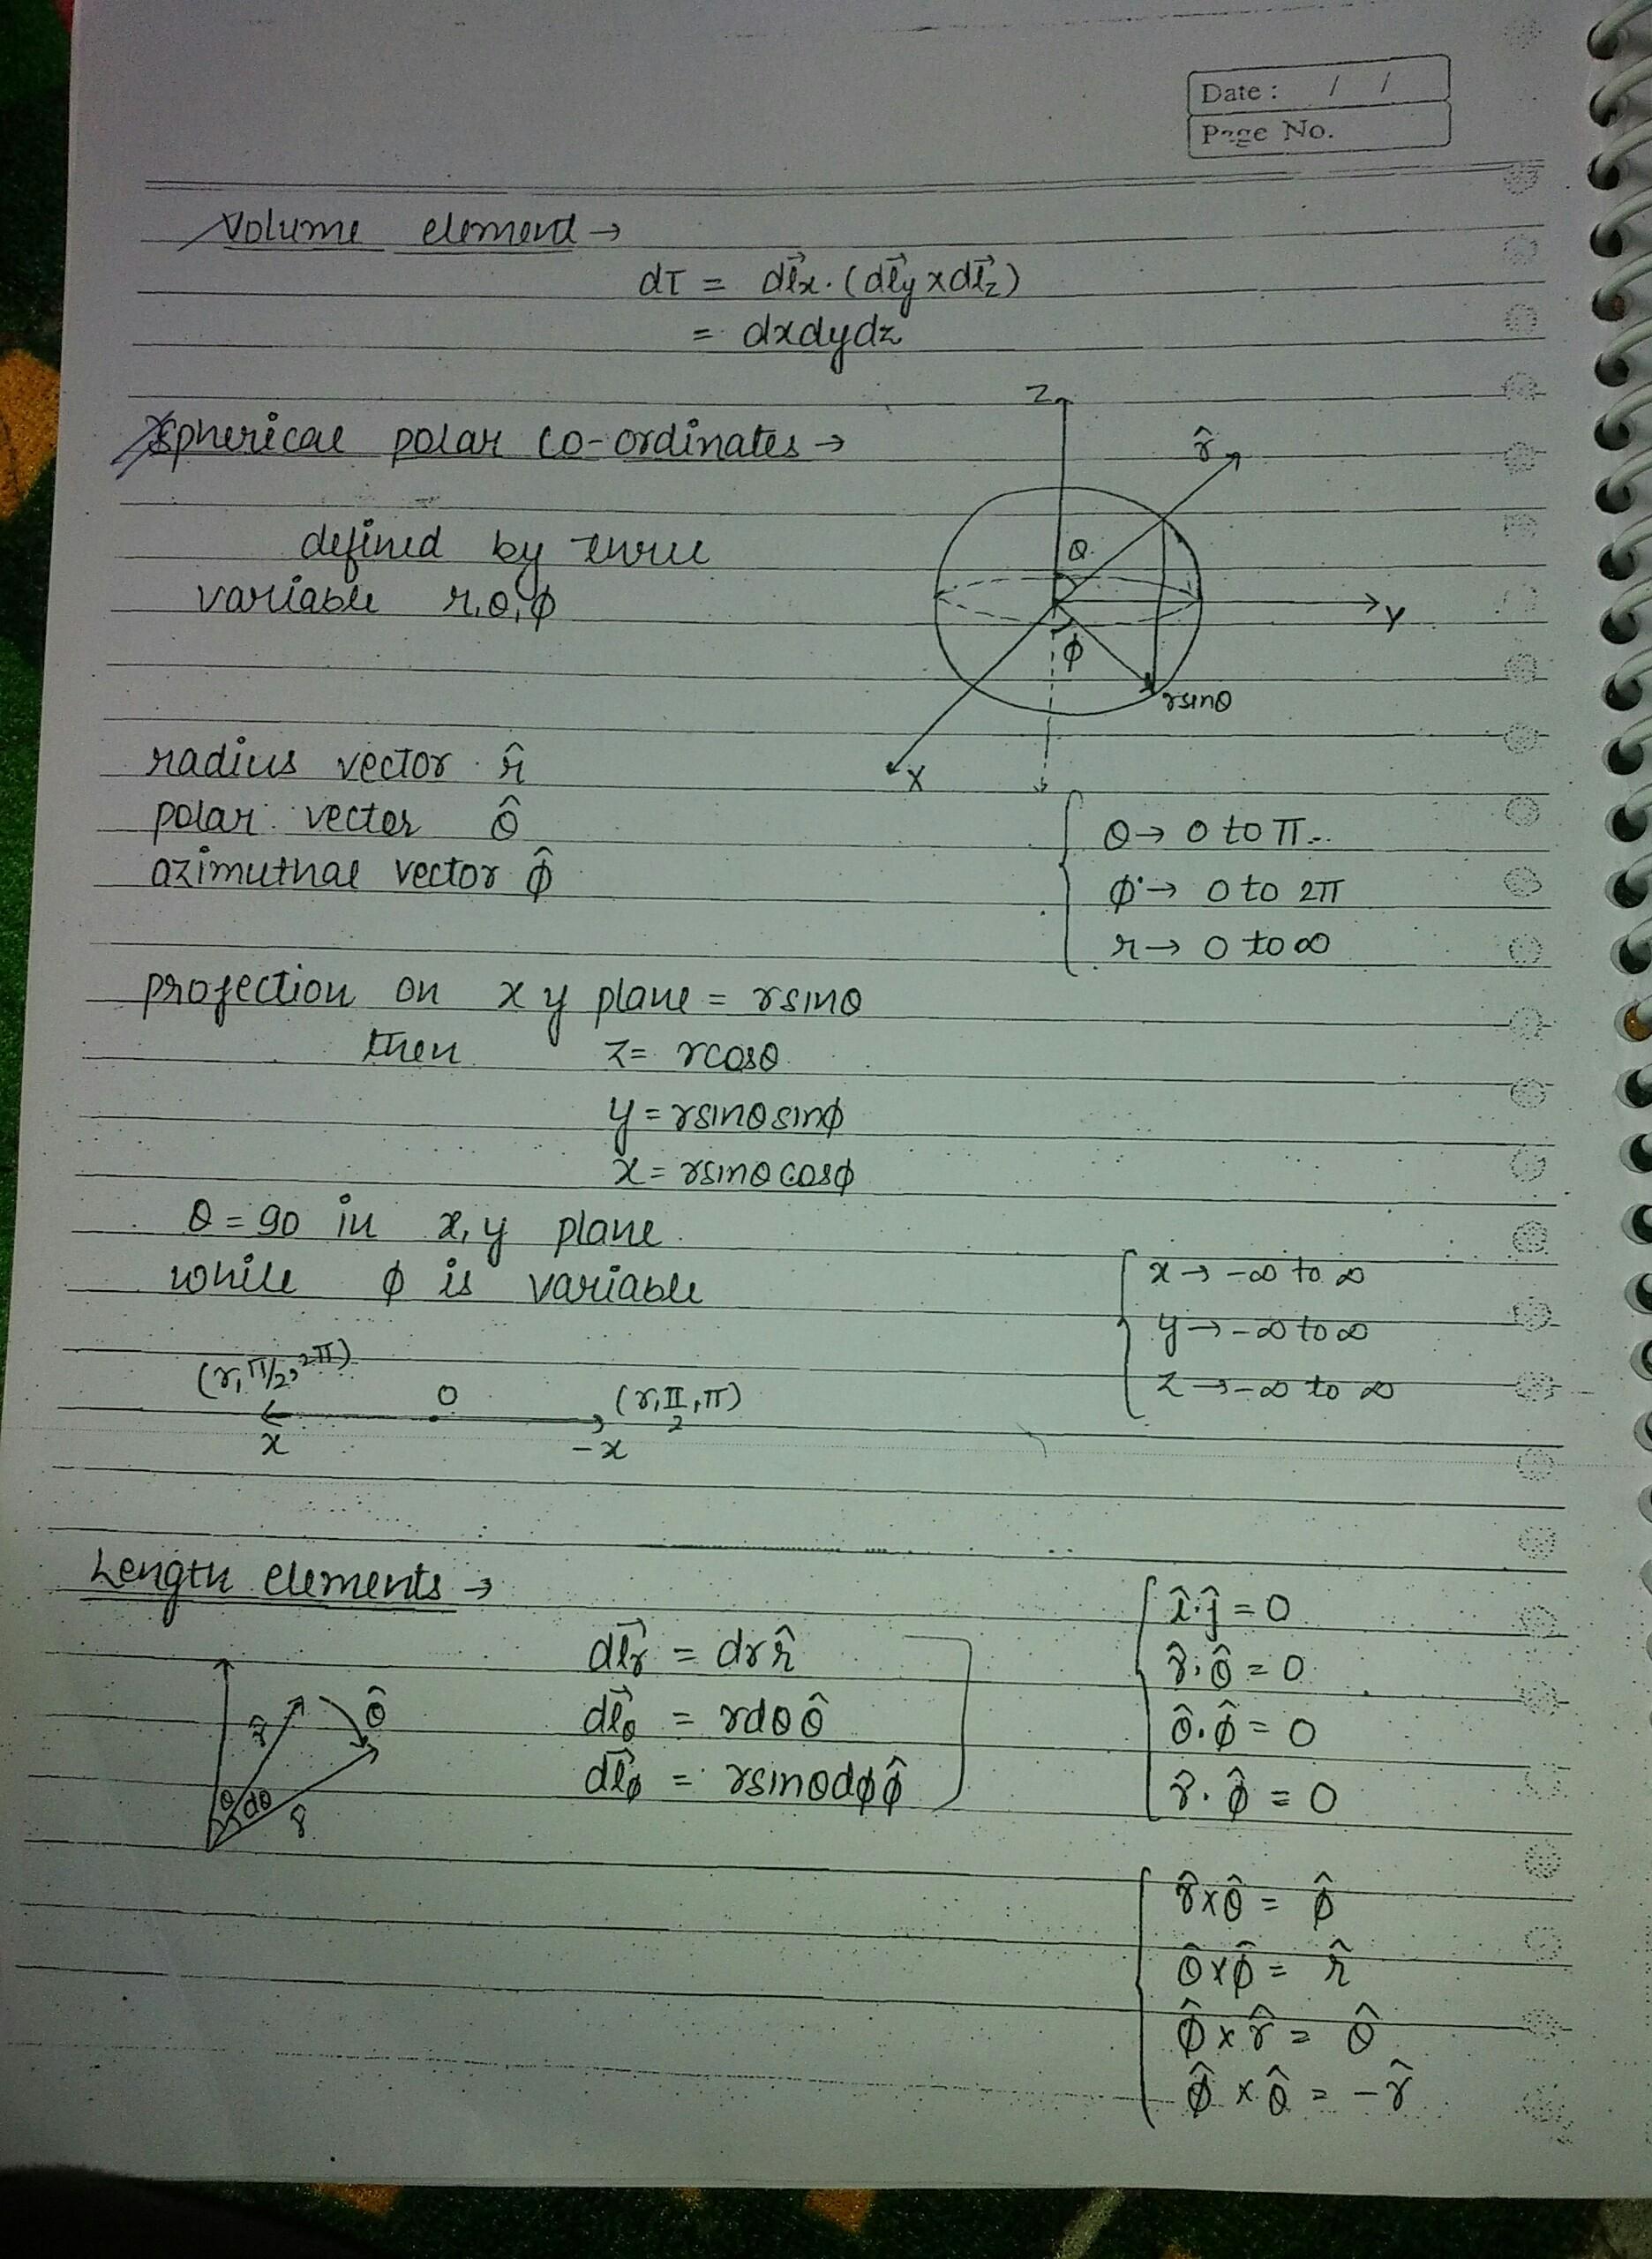 Date : / /
Page No.
Volume element →
dτ = dl⃗x . (dl⃗y × dl⃗z)
= dxdydz
Spherical polar co-ordinates →
defined by three
variable r, θ, ϕ
Z
r̂
θ
Y
ϕ
rsinθ
X
radius vector r̂
polar vector θ̂
azimuthal vector ϕ̂
θ → 0 to π
ϕ → 0 to 2π
r → 0 to ∞
projection on x y plane = rsinθ
then z = rcosθ
y = rsinθsinϕ
x = rsinθcosϕ
θ = 90 in x, y plane
while ϕ is variable
x → -∞ to ∞
y → -∞ to ∞
z → -∞ to ∞
(r, π/2, 2π) O (r, π/2, π)
x -x
Length elements →
dl⃗r = dr r̂
dl⃗θ = rdθ θ̂
dl⃗ϕ = rsinθdϕ ϕ̂
r̂ θ̂
θ dθ r̂
î . ĵ = 0
r̂ . θ̂ = 0
θ̂ . ϕ̂ = 0
r̂ . ϕ̂ = 0
r̂ × θ̂ = ϕ̂
θ̂ × ϕ̂ = r̂
ϕ̂ × r̂ = θ̂
ϕ̂ × θ̂ = -r̂